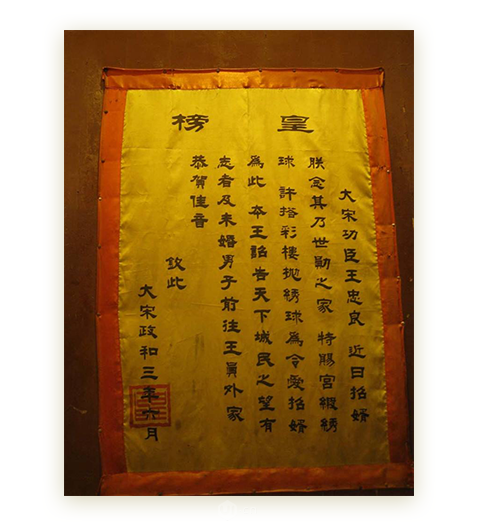 皇榜
大宋功臣王忠良 近日招婿
朕念其乃世勛之家 特賜宮緞綉
球 許搭彩樓拋綉球為令愛招婿
為此 本王詔告天下城民之望有
志者及未婚男子前往王員外家
恭賀佳音
欽此
大宋政和三年六月